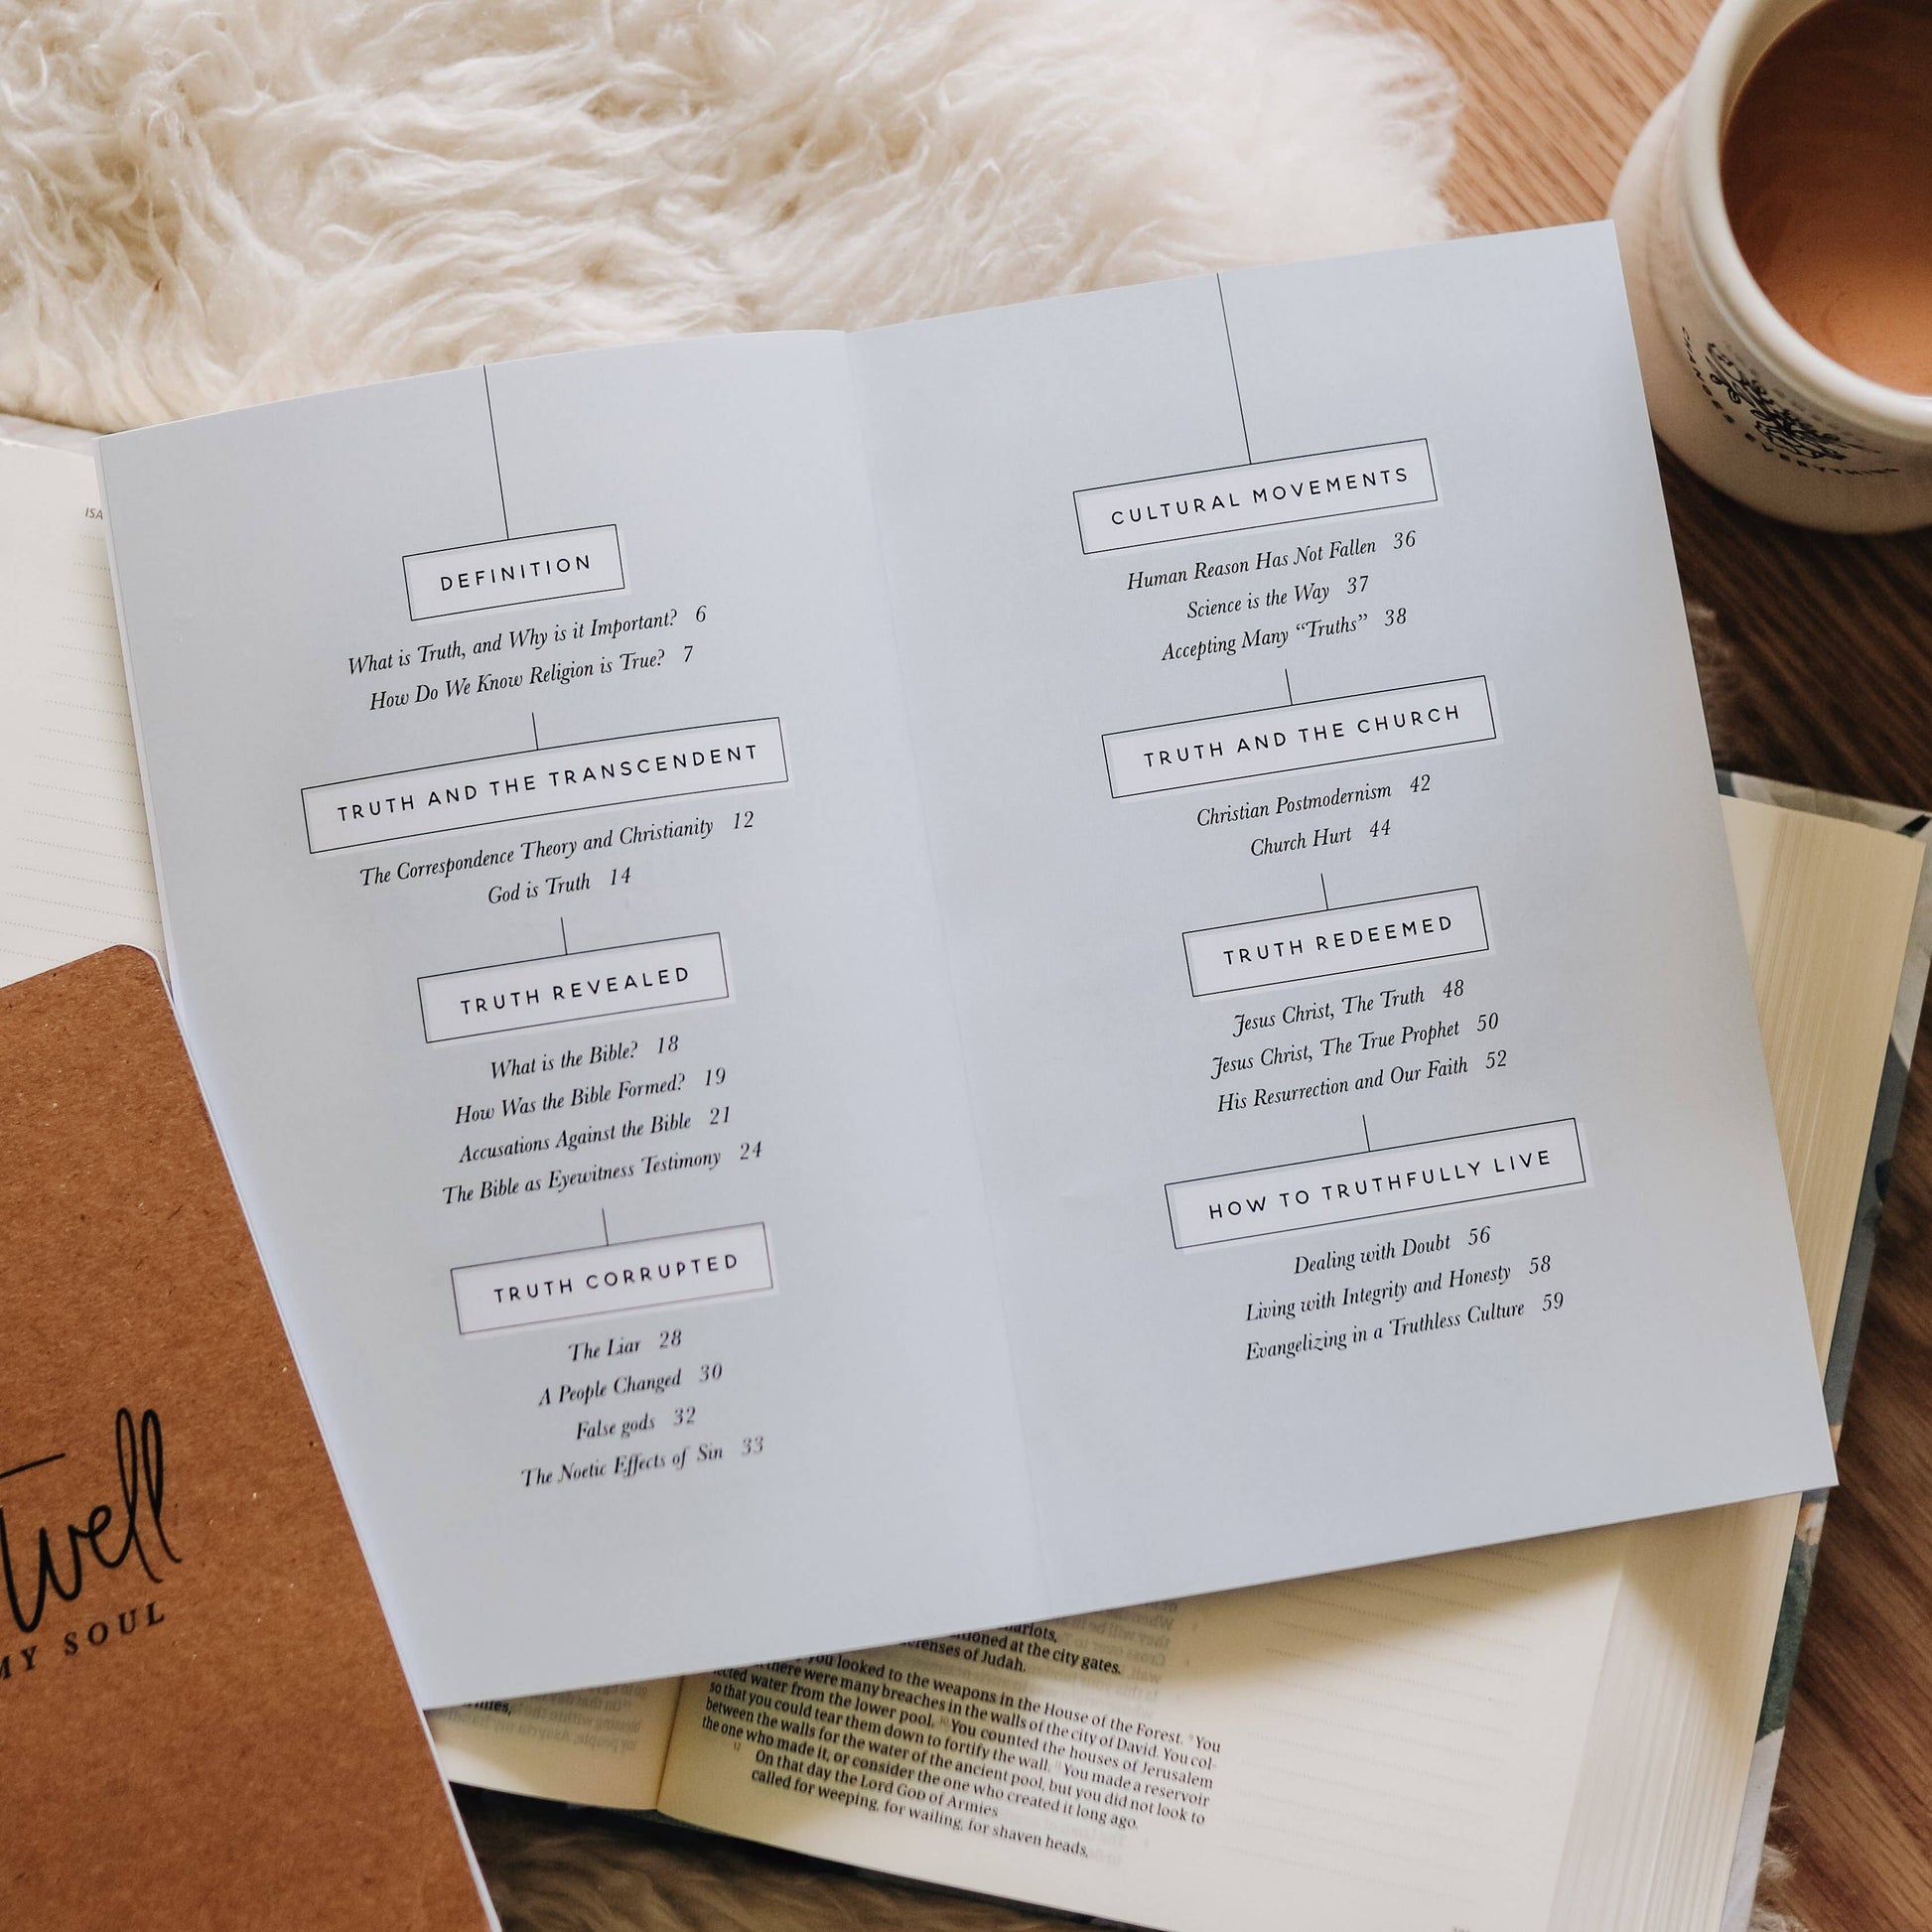 DEFINITION
What is Truth, and Why is it Important? 6
How Do We Know Religion is True? 7
TRUTH AND THE TRANSCENDENT
The Correspondence Theory and Christianity 12
God is Truth 14
TRUTH REVEALED
What is the Bible? 18
How Was the Bible Formed? 19
Accusations Against the Bible 21
The Bible as Eyewitness Testimony 24
TRUTH CORRUPTED
The Liar 28
A People Changed 30
False gods 32
The Noetic Effects of Sin 33
CULTURAL MOVEMENTS
Human Reason Has Not Fallen 36
Science is the Way 37
Accepting Many “Truths” 38
TRUTH AND THE CHURCH
Christian Postmodernism 42
Church Hurt 44
TRUTH REDEEMED
Jesus Christ, The Truth 48
Jesus Christ, The True Prophet 50
His Resurrection and Our Faith 52
HOW TO TRUTHFULLY LIVE
Dealing with Doubt 56
Living with Integrity and Honesty 58
Evangelizing in a Truthless Culture 59
ISA
well
MY SOUL
CHANGES EVERYTHING
at the city gates.
of Judah.
you looked to the weapons in the House of the Forest. 9 You
there were many breaches in the walls of the city of David. You col-
water from the lower pool. 10 You counted the houses of Jerusalem
so that you could tear them down to fortify the wall. 11 You made a reservoir
between the walls for the water of the ancient pool, but you did not look to
the one who made it, or consider the one who created it long ago.
12 On that day the Lord GOD of Armies
called for weeping, for wailing, for shaven heads,